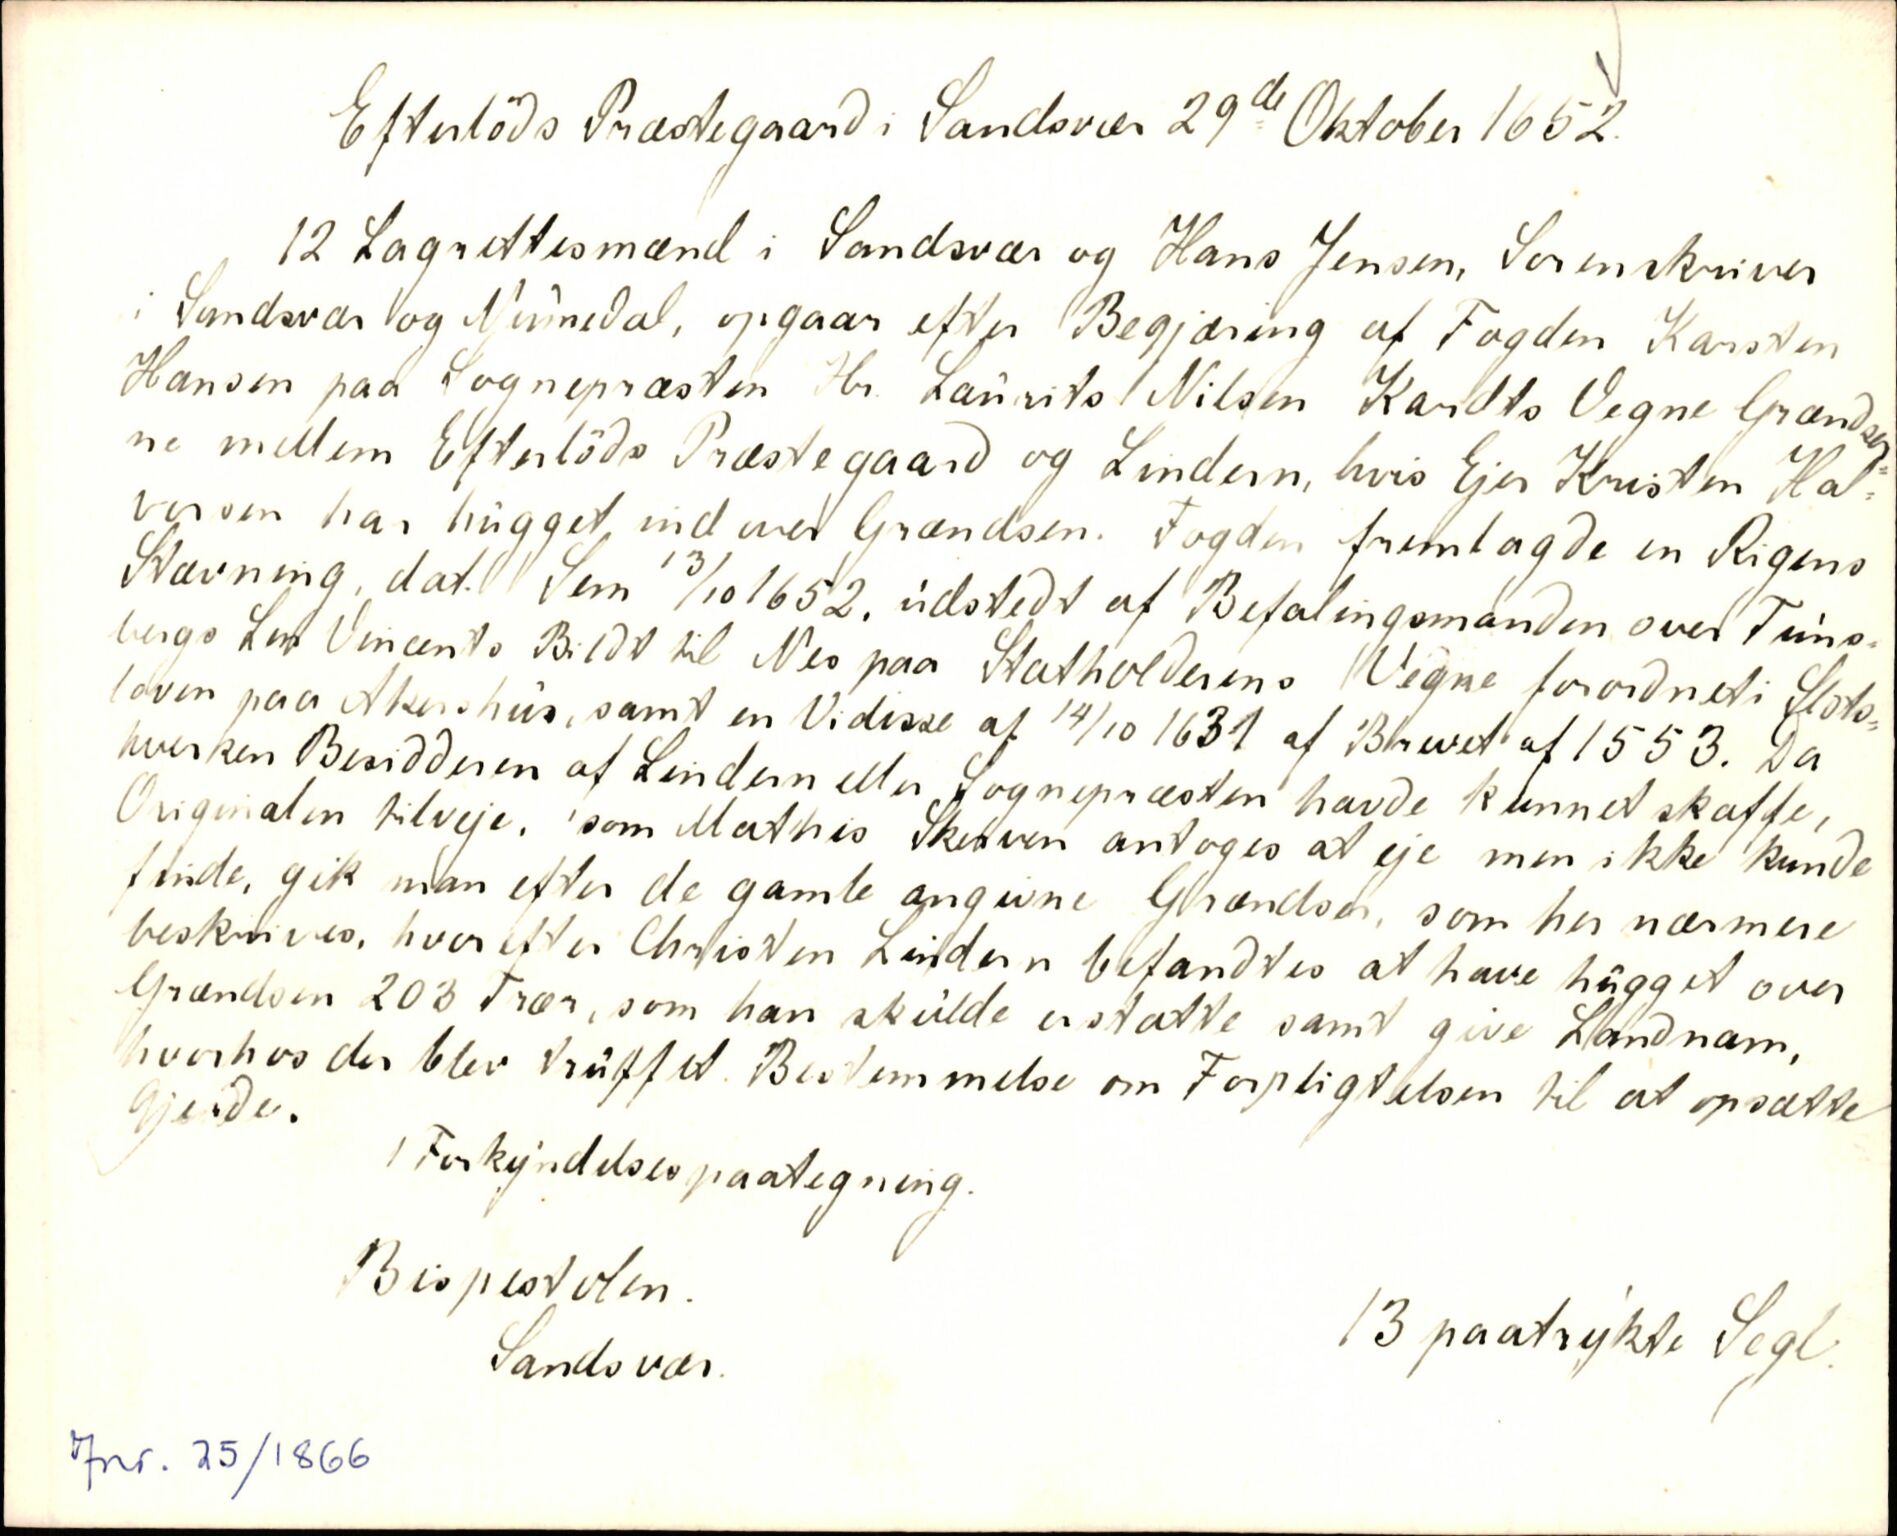 Efterlöds Præstegaard i Sandsvær 29de Oktober 1652.
12 Lagrettesmænd i Sandsvær og Hans Jensen, Sorenskriver
i Sandsvær og Nûmedal, opgaar efter Begjæring af Fogden Karsten
Hansen paa Sognepræsten Hr. Laûrits Nilsen Kardts Vegne Grændser=
ne mellem Efterlöds Præstegaard og Lindern, hvis Ejer Kristen Hal=
vorsen har hûgget ind over Grændsen. Fogden fremlagde en Rigens
Stævning, dat. Sem 13/10 1652, ûdstedt af Befalingsmanden over Tûns=
bergs Len Vincents Bildt til Nes paa Statholderens Vegne forordnet i Slots=
loven paa Akershûs, samt en Vidisse af 14/10 1631 af Brevet af 1553. Da
hverken Besidderen af Lindern eller Sognepræsten havde kunnet skaffe,
Originalen tilveje, som Mathis Skerven antoges at eje men ikke kunde
finde, gik man efter de gamle angivne Grændser, som her nærmere
beskrives, hvorefter Christen Lindern befandtes at have hûgget over
Grændsen 203 Trær, som han skûlde erstatte samt give Landnam,
hvorhos der blev trûffet Bestemmelse om Forpligtelsen til at opsætte
Gjerde.
1 Forkyndelsespaategning.
Bispestolen.
Sandsvær.
13 paatrykte Segl.
Jnr. 25/1866